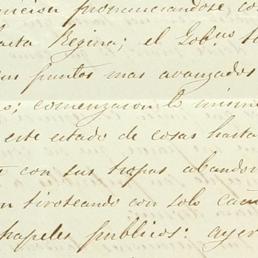 pronunciandose, co
Carta Regina; el Gob.no
puntos mas avanzados
comenzaron lo mismo
este estado de cosas hasta
con sus tropas abandon
tiroteando con solo
papeles publicos: ayer